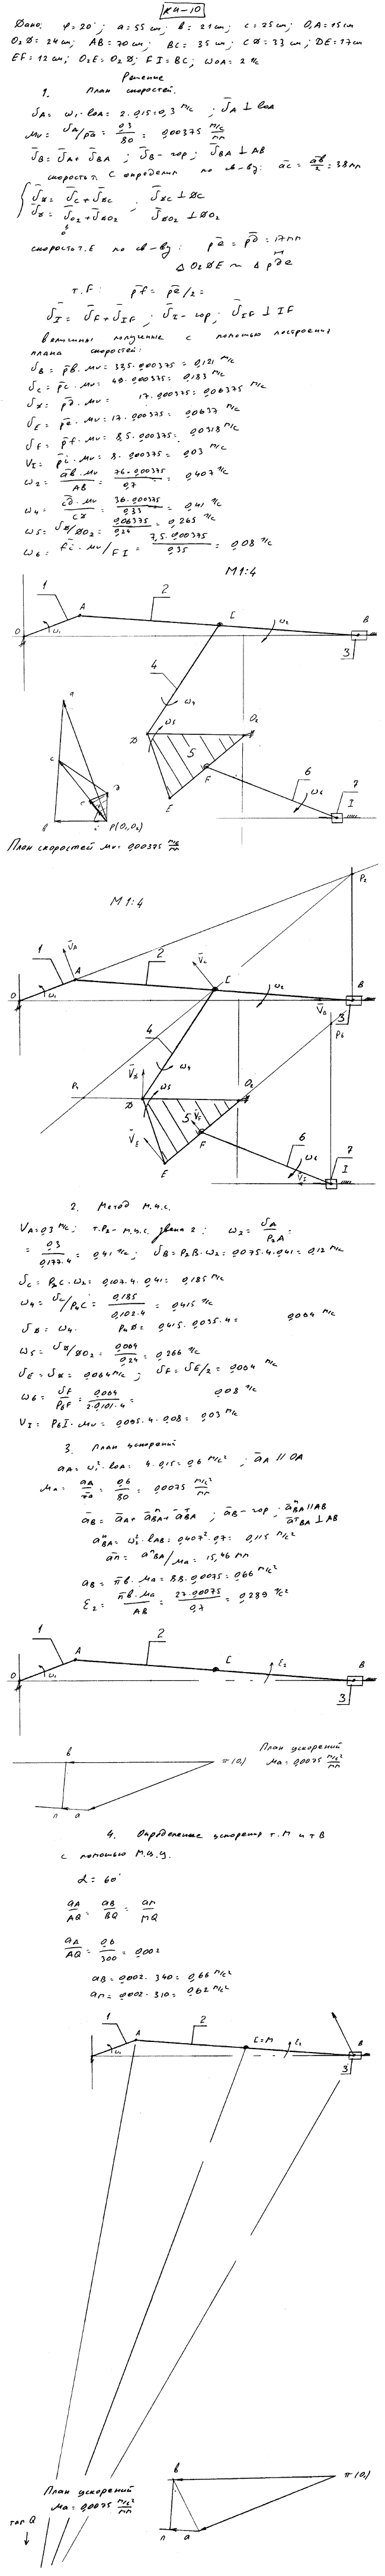 К4-10
Дано: φ=20°; a=55 см; в=21 см; c=25 см; O₁A=15 см
O₂D=24 см; AB=70 см; BC=35 см; CD=33 см; DE=17 см
EF=12 см; O₂E=O₂D; FI=BC; ωOA=2 1/c
Решение
1. План скоростей.
VA=ω₁·lOA=2·0,15=0,3 м/с; VA⊥lOA
μv=VA/pa=0,3/80=0,00375 (м/с)/мм
VB=VA+VBA; VB-гор; VBA⊥AB
скорость т. C определим по св-ву: ac=ab/2=38мм
VD=VC+VDC VDC⊥DC
VD=VO2+VDO2 VDO2⊥DO2
скорость т. E по св-ву: pe=pd=17мм
ΔO₂DE ~ Δpde
т.F: pf=pe/2=
VI=VF+VIF; VI-гор; VIF⊥IF
величины полученные с помощью построения
плана скоростей:
VB=pb·μv=33,5·0,00375=0,121 м/с
VC=pc·μv=49·0,00375=0,183 м/с
VD=pd·μv=17·0,00375=0,06375 м/с
VE=pe·μv=17·0,00375=0,0637 м/с
VF=pf·μv=8,5·0,00375=0,0318 м/с
VI=pi·μv=8·0,00375=0,03 м/с
ω2=ab·μv/AB=76·0,00375/0,7=0,407 1/с
ω4=cd·μv/CD=36·0,00375/0,33=0,41 1/с
ω5=VD/DO2=0,06375/0,24=0,265 1/с
ω6=fi·μv/FI=7,5·0,00375/0,35=0,08 1/с
М1:4
1 A 2 C B
O ω1 ω2 3
4
ω4
D ω5 O2
5 F
E 6 7
ω6 I
a
c
d
e
b i P(O1,O2)
План скоростей μv=0,00375 (м/с)/мм
М1:4
P2
1 VA A 2 VC C B
O ω1 ω2 VB 3
4 P6
P4 ω4
VD D ω5 O2
5 VF F
VE E 6 7
ω6 I
VI
2. Метод м.ц.с.
VA=0,3 м/с; т.P2-м.ц.с. звена 2; ω2=VA/P2A=
=0,3/0,177·4=0,41 1/с; VB=P2B·ω2=0,075·4·0,41=0,12 м/с
VC=P2C·ω2=0,107·4·0,41=0,185 м/с
ω4=VC/P4C=0,185/0,102·4=0,415 1/с
VD=ω4·P4D=0,415·0,035·4=0,064 м/с
ω5=VD/DO2=0,064/0,24=0,266 1/с
VE=VD=0,064м/с; VF=VE/2=0,064 м/с
ω6=VF/P6F=0,064/2·0,101·4=0,08 1/с
VI=P6I·μv=0,095·4·0,08=0,03 м/с
3. План ускорений
aA=ω₁²·lOA=4·0,15=0,6 м/с²; aA//OA
μa=aA/πa=0,6/80=0,0075 (м/с²)/мм
aB=aA+aⁿBA+aᵀBA; aB-гор; aⁿBA//AB
aᵀBA⊥AB
aⁿBA=ω₂²·lAB=0,407²·0,7=0,115 м/с²
an=aⁿBA/μa=15,46 мм
aB=πb·μa=88·0,0075=0,66 м/с²
ε2=nb·μa/AB=27·0,0075/0,7=0,289 1/с²
1 A 2 C B
O ω1 ε2 3
b π(O1)
n a
План ускорений
μa=0,0075 (м/с²)/мм
4. Определение ускорения т.М и т В
с помощью М.ц.у.
α=60°
aA/AQ=aB/BQ=aM/MQ
aA/AQ=0,6/300=0,002
aB=0,002·340=0,66 м/с²
aM=0,002·310=0,62 м/с²
1 A 2 C=M B
ω1 ε2 3
План ускорений
μa=0,0075 (м/с²)/мм
b π(O1)
n a
Q